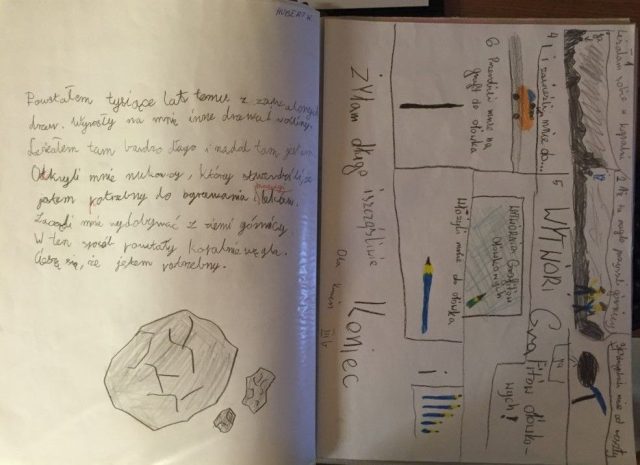 HUBERT K.
Powstałem tysiące lat temu z zawalonych
drzew. Wyrosły na mnie inne drzewa i rośliny.
Leżałem tam bardzo długo i nadal tam jestem
Odkryli mnie naukowcy, który stwierdzili, że
jestem potrzebny do ogrzewania i leków.
Zaczęli mnie wydobywać z ziemi górnicy.
W ten sposób powstały kopalnie węgla.
Cieszę się, że jestem potrzebny.
1
Leżałam sobie w kopalni
2 Aż tu nagle
górnicy
mnie od reszty
4 I zanieśli mnie do...
5 WYTWÓRNI
Grafitów ołówko-
wych!
6 Przerobili mnie na
grafit do ołówka
Wytwórnia Grafitów
Ołówkowych
Włożyli mnie do ołówka
i
żyłam długo i szczęśliwie
Koniec
Ola
III b